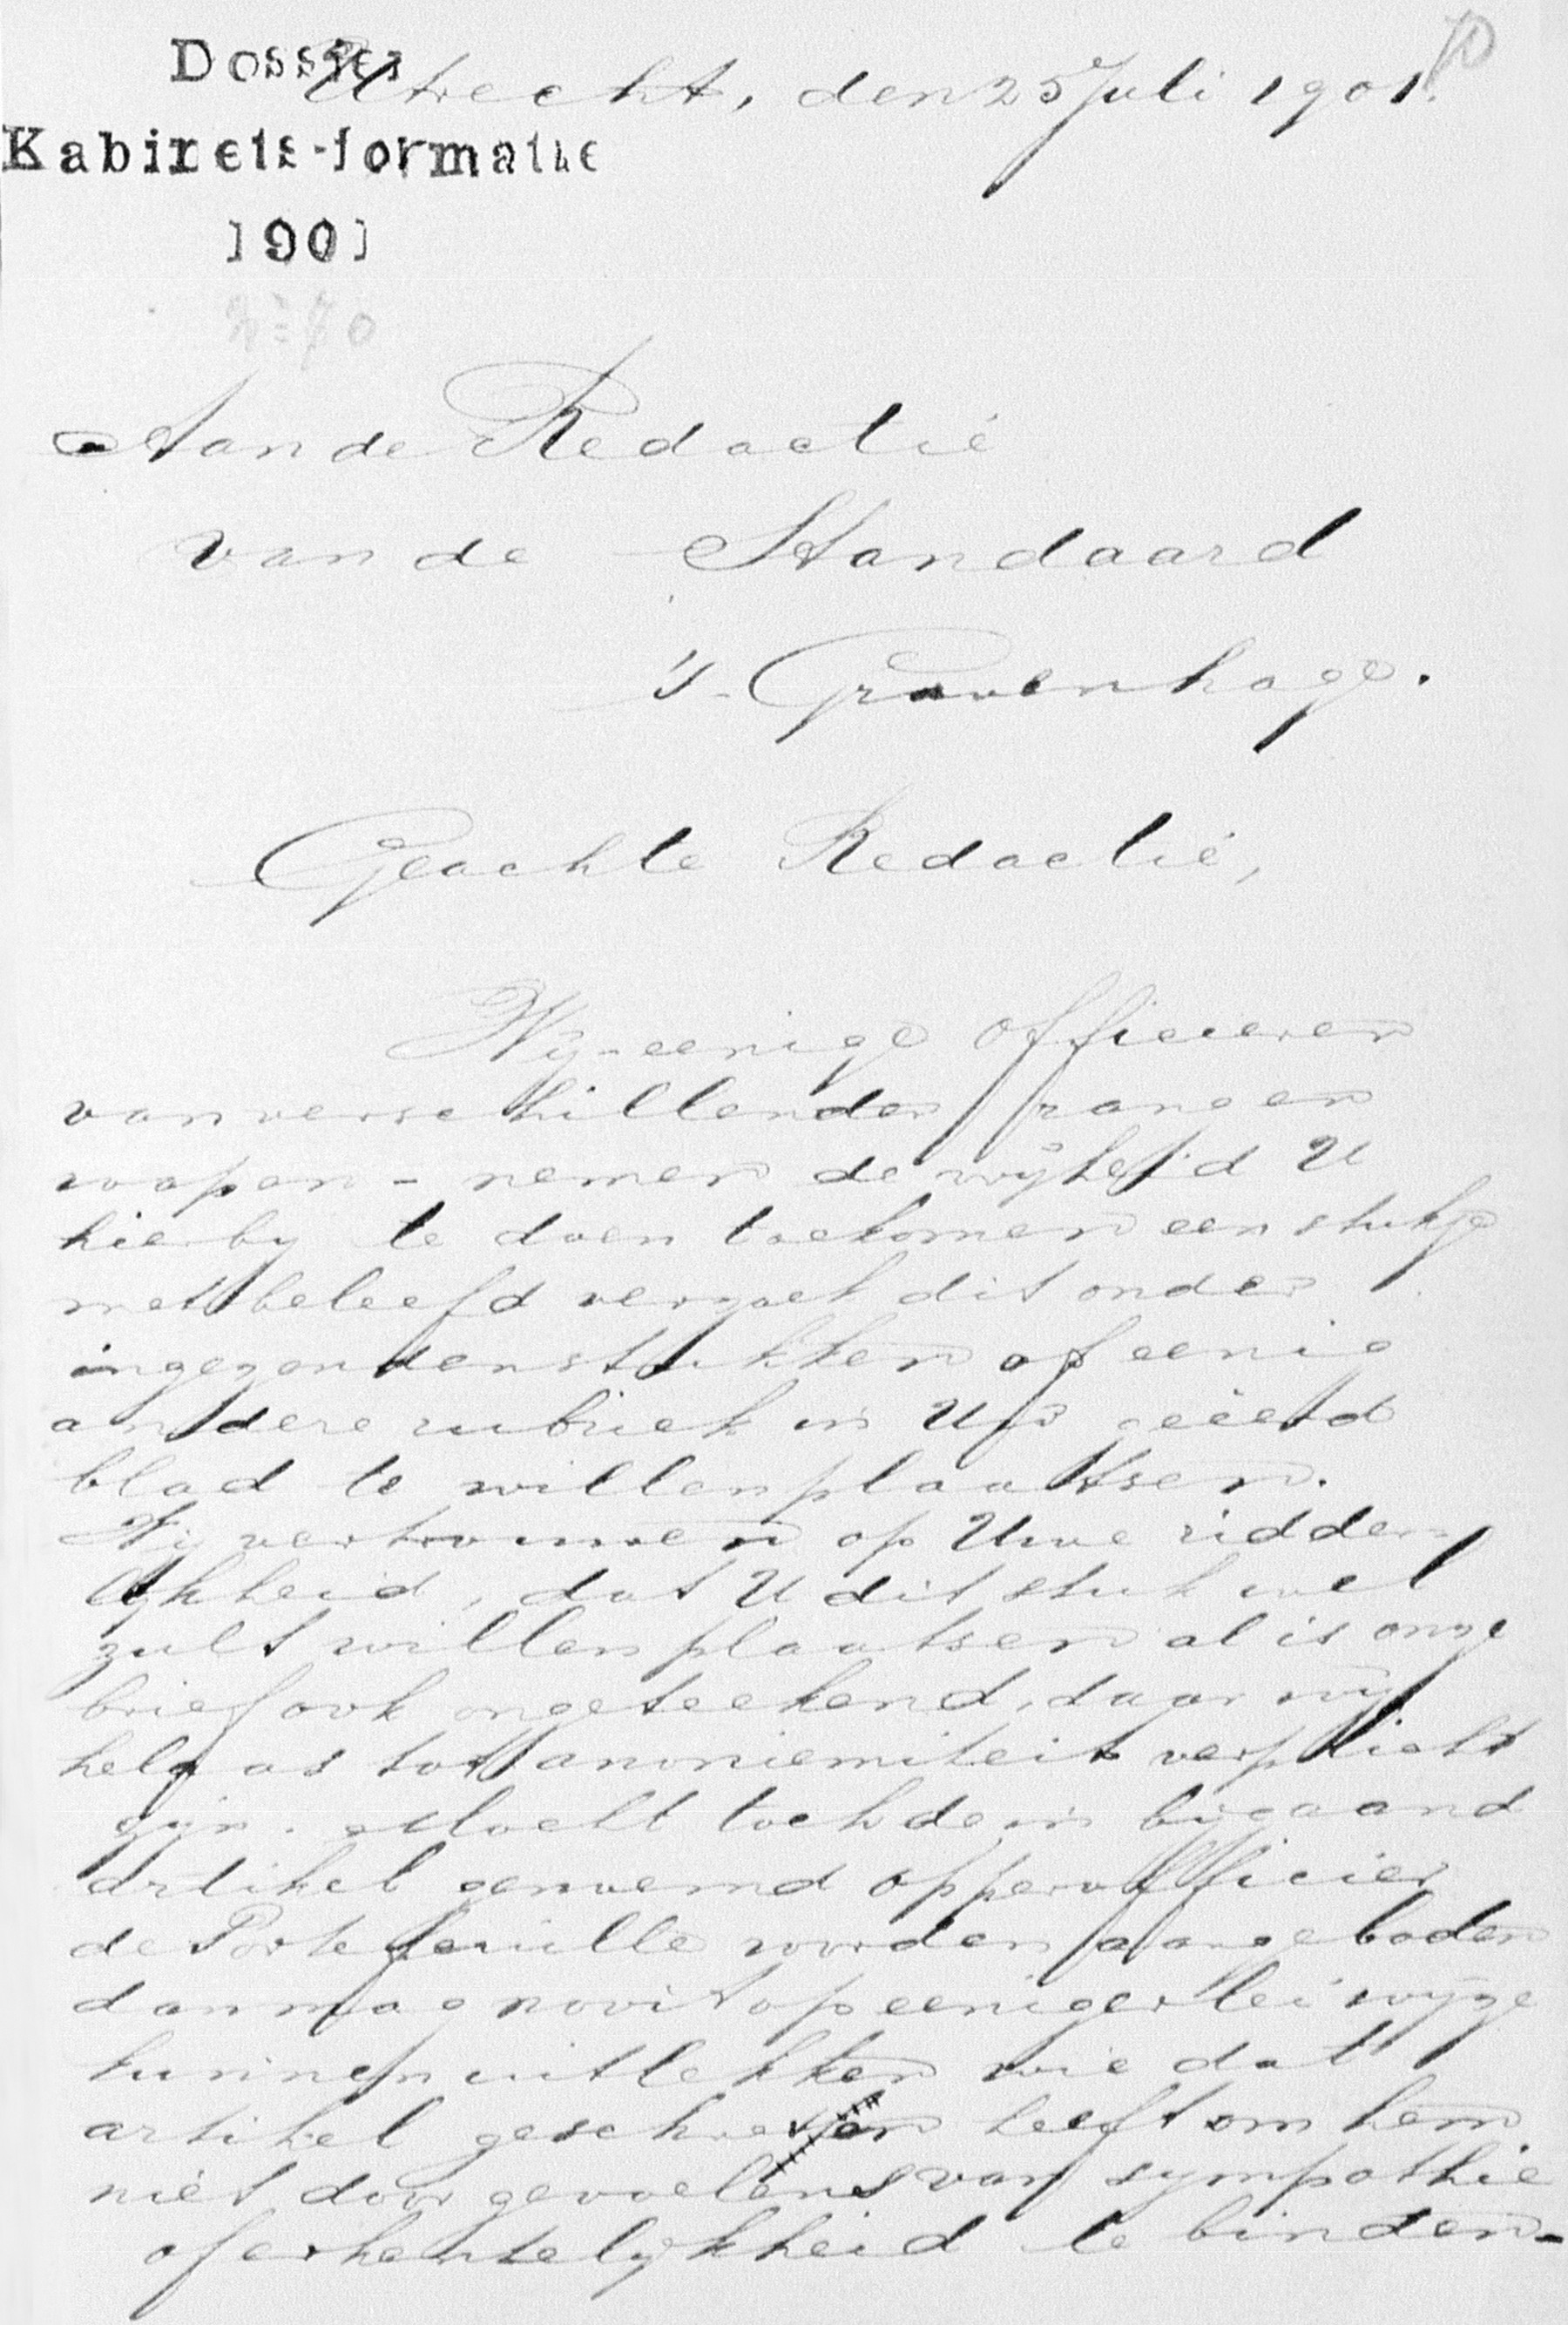 70
Dossier
Utrecht, den 25 Juli 1901.
Kabinets-formatie
1901
no 70
Aan de Redactie
van de Standaard
's-Gravenhage.
Geachte Redactie,
Wij-eenige officieren
van verschillenden rang en
wapen - nemen de vrijheid U
hierby te doen toekomen een stukje
met beleefd verzoek dit onder
ingezonden stukken of eenige
andere rubriek in Uw geëerd
blad te willen plaatsen.
Wij vertrouwen op Uwe ridder-
lijkheid, dat U dit stuk wel
zult willen plaatsen al is onze
brief ook ongeteekend, daar wij
helaas tot anoniemiteit verplicht
zijn. Mocht toch de in bijgaand
artikel genoemd opperofficier
de Portefeuille worden aangeboden
dan mag nooit op eenigerlei wijze
kunnen uitlekken wie dat
artikel geschreven heeft om hem
niet door gevoelens van sympathie
of erkentelijkheid te binden-